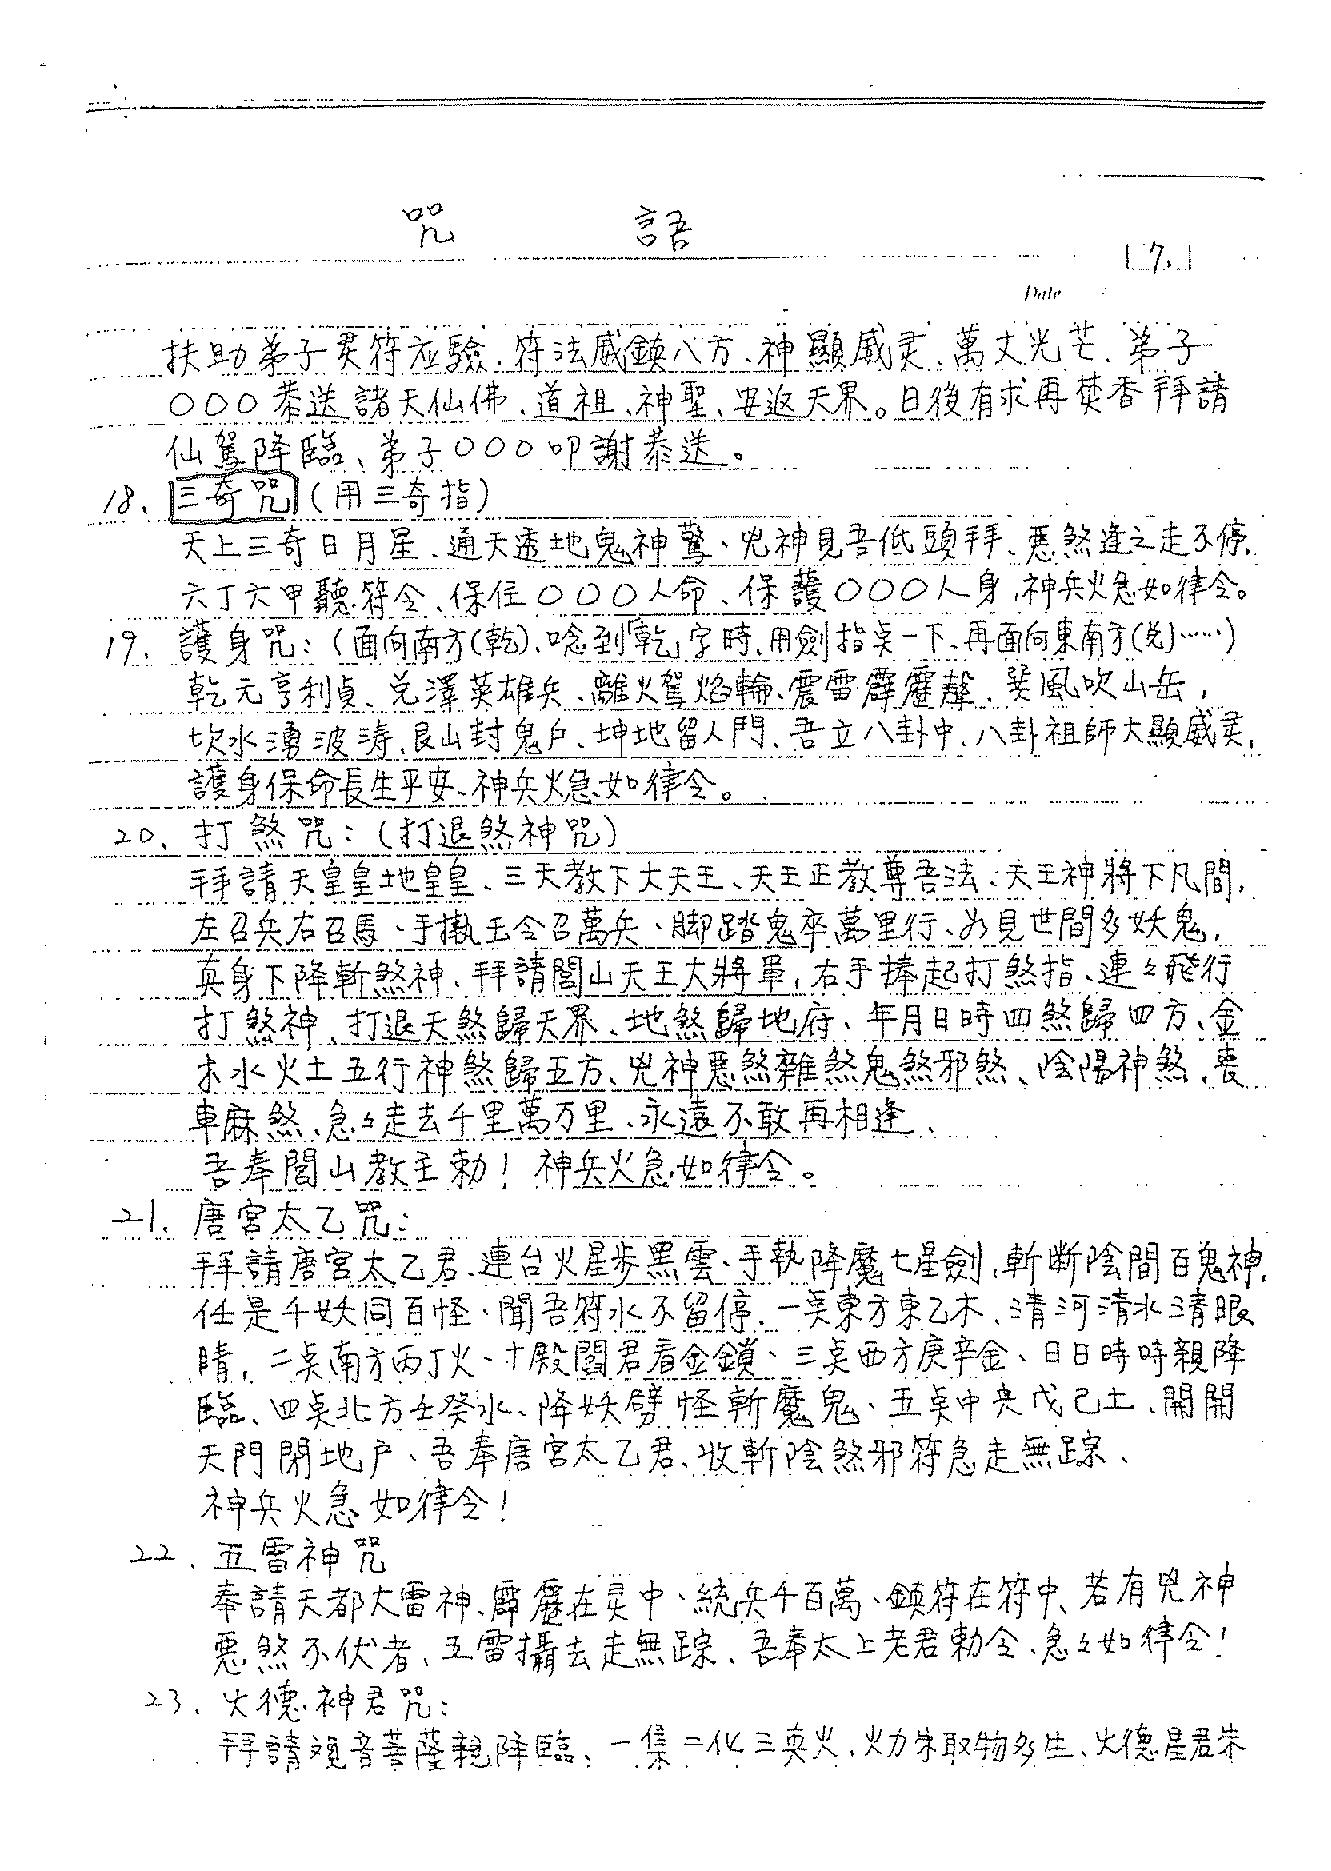 咒 語
7.
Date
扶助弟子灵符应驗、符法威鎮八方、神顯威灵、萬丈光芒、弟子
○○○恭送諸天仙佛、道祖、神聖、安返天界。日後有求再焚香拜請
仙駕降臨、弟子○○○叩謝恭送。
18. 三奇咒（用三奇指）
天上三奇日月星、通天透地鬼神驚、兇神見吾低頭拜、惡煞逢之走不停、
六丁六甲聽符令、保住○○○人命、保護○○○人身，神兵火急如律令。
19. 護身咒：（面向南方(乾)、唸到「乾」字時、用劍指点一下、再面向東南方(兌)……）
乾元亨利貞、兌澤英雄兵、離火駕焰輪、震雷霹靂聲、巽風吹山岳，
坎水湧波涛、艮山封鬼户、坤地留人門、吾立八卦中、八卦祖師大顯威灵，
護身保命長生平安、神兵火急如律令。
20. 打煞咒：（打退煞神咒）
拜請天皇皇地皇皇、三天教下大天王、天王正教尊吾法、天王神將下凡間，
左召兵右召馬、手執玉令召萬兵、脚踏鬼卒萬里行、如見世間多妖鬼，
真身下降斬煞神、拜請閭山天王大將軍，右手捧起打煞指、連々飛行
打煞神、打退天煞歸天界、地煞歸地府、年月日時四煞歸四方、金
木水火土五行神煞歸五方、兇神惡煞雜煞鬼煞邪煞、陰陽神煞、喪
車麻煞、急々走去千里萬万里、永遠不敢再相逢、
吾奉閭山教主勅！神兵火急如律令。
21. 唐宮太乙咒：
拜請唐宮太乙君、連台火星步黑雲、手執降魔七星劍，斬断陰間百鬼神，
任是千妖同百怪、聞吾符水不留停、一点東方東乙木、清河清水清眼
睛，二点南方丙丁火、十殿閻君看金鎖、三点西方庚辛金、日日時時親降
臨、四点北方壬癸水、降妖劈怪斬魔鬼、五点中央戊己土、開開
天門閉地户、吾奉唐宮太乙君、收斬陰煞邪符急走無踪、
神兵火急如律令！
22. 五雷神咒
奉請天都大雷神、霹靂在灵中、統兵千百萬、鎮符在符中、若有兇神
惡煞不伏者、五雷攝去走無踪、吾奉太上老君勅令、急々如律令！
23. 火德神君咒：
拜請观音菩薩親降臨、一集二化三奌火、火力朱取物多生、火德星君朱